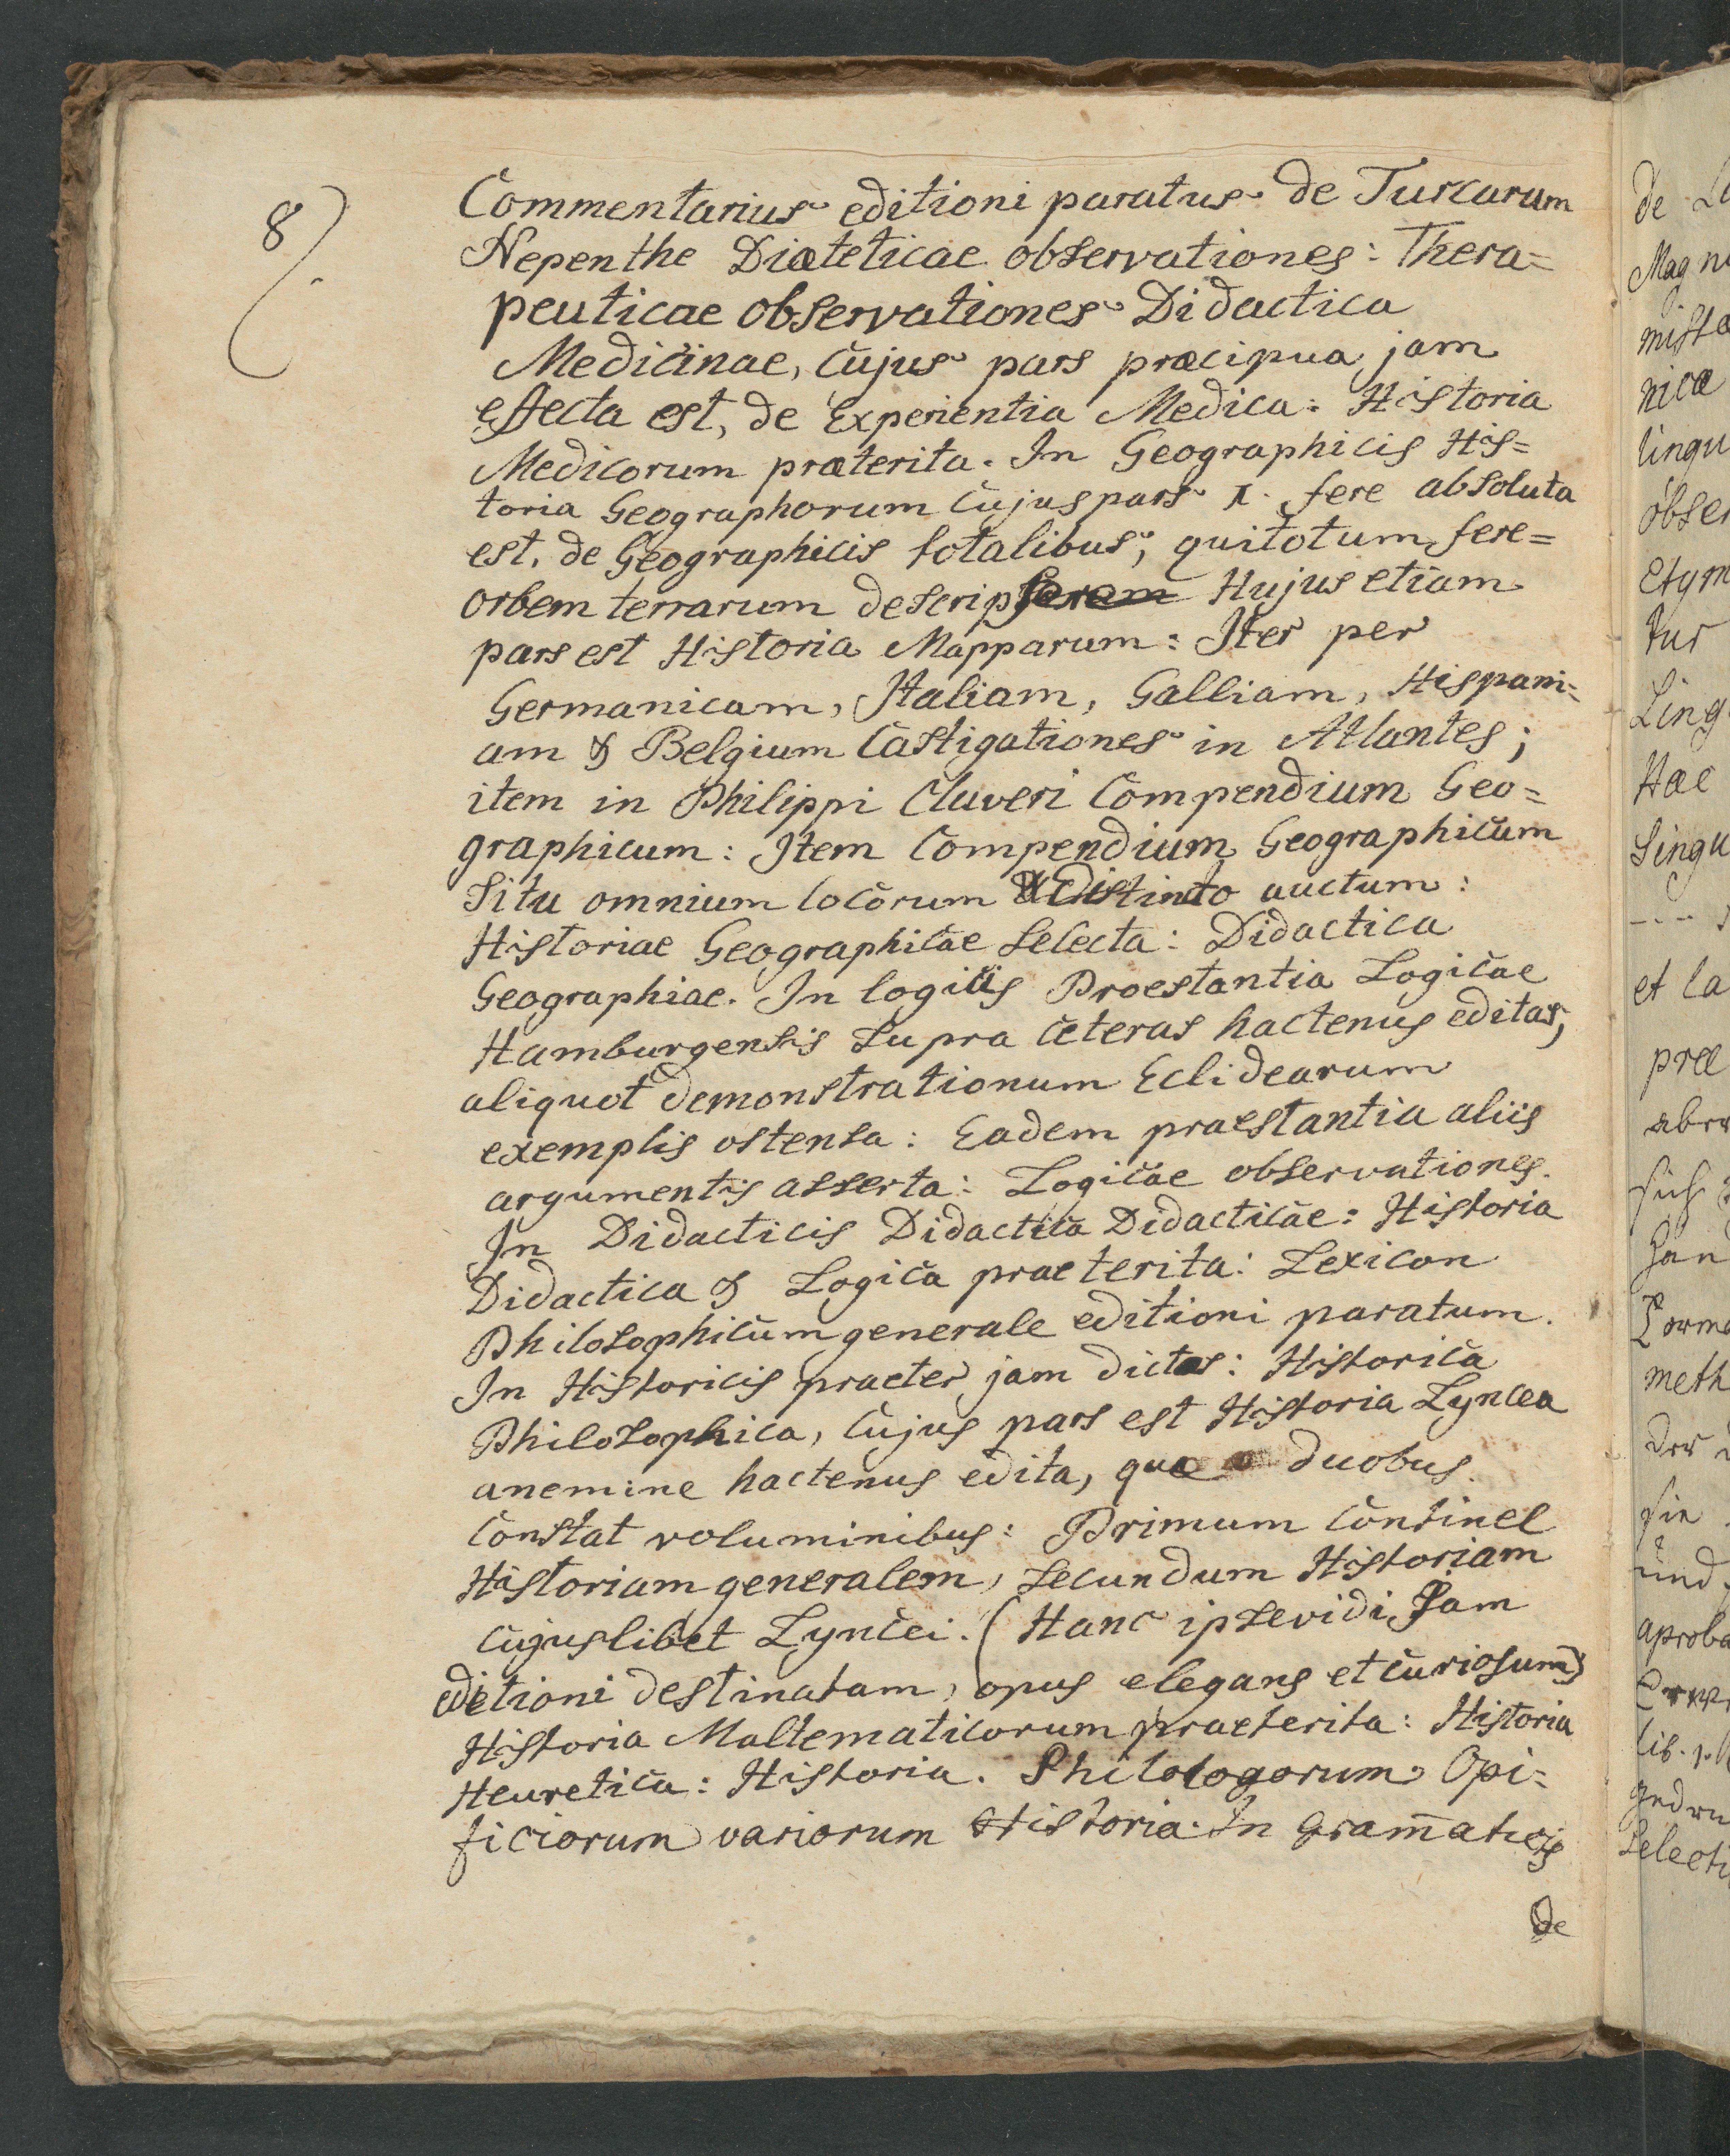 8
Commentarius editioni paratus de Turcarum
Nepenthe Diæteticae observationes: Thera=
peuticae observationes Didactica
Medicinae, cujus pars præcipua jam
effecta est, de Experientia Medica: Historia
Medicorum præterita. In Geographicis His=
toria Geographorum cujus pars I. fere absoluta
est, de Geographicis totalibus, qui totum fere=
orbem terrarum descripseram Hujus etiam
pars est Historia Mapparum: Iter per
Germanicam, Italiam, Galliam, Hispani=
am & Belgium Castigationes in Atlantes;
item in Philippi Cluveri Compendium Geo=
graphicum: Item Compendium Geographicum
situ omnium locorum distincto auctum:
Historiae Geographicae selecta: Didactica
Geographiae. In logicis Proestantia Logicae
Hamburgensis supra ceteras hactenus editas,
aliquot demonstrationum Eclidearum
exemplis ostensa: Eadem praestantia aliis
argumentis asserta: Logicae observationes.
In Didacticis Didactica Didacticae: Historia
Didactica & Logica praeterita: Lexicon
Philosophicum generale editioni paratum.
In Historicis praeter jam dictas: Historica
Philosophica, cujus pars est Historia Lyncea
anemine hactenus edita, quae duobus
constat voluminibus: Primum continel
Historiam generalem, secundum Historiam
cujuslibet Lyncei. (Hanc ipse vidi jam
editioni destinatam, opus elegans et curiosum)
Historia Maltematicorum praeterita: Historia
Heuretica: Historia. Philologorum Opi=
ficiorum variorum Historia. In Gram̅aticis
de
de
Magn
nica
lingu
obser
etym
tur
Ling
Hae
Lingu
et la
prae
meth
und
aproba
lib.
Selecti